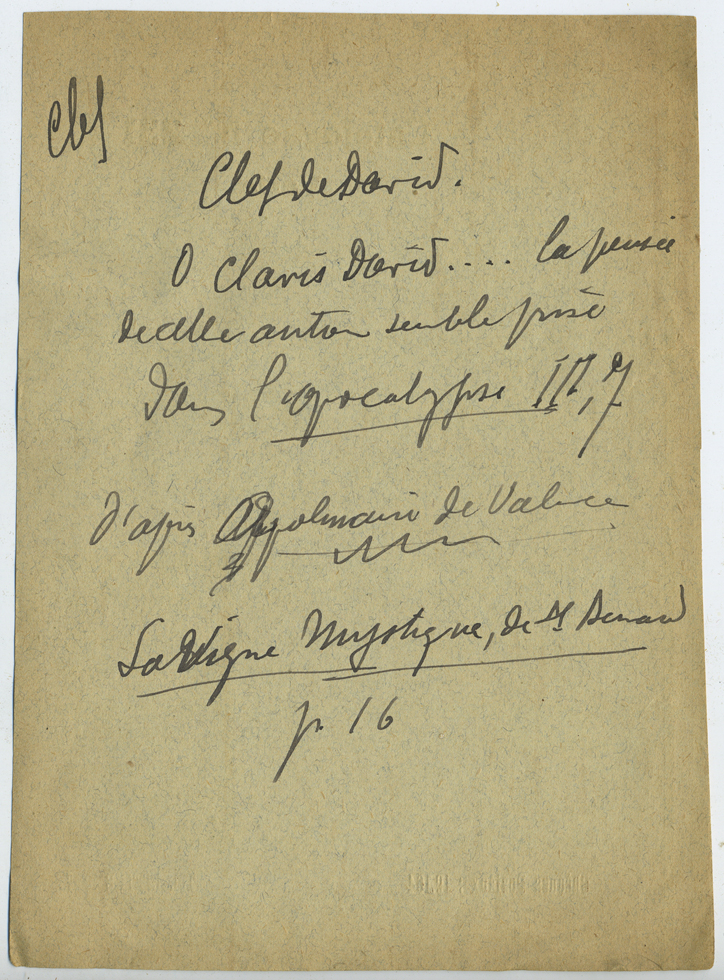 Clef
Clef de David.
O Clavis David.... la pensée
de cette antienne semble prise
dans l'apocalypse III, 7
d'après Appolinaire de Valence
La Vigne Mystique, de St Bernard
p. 16